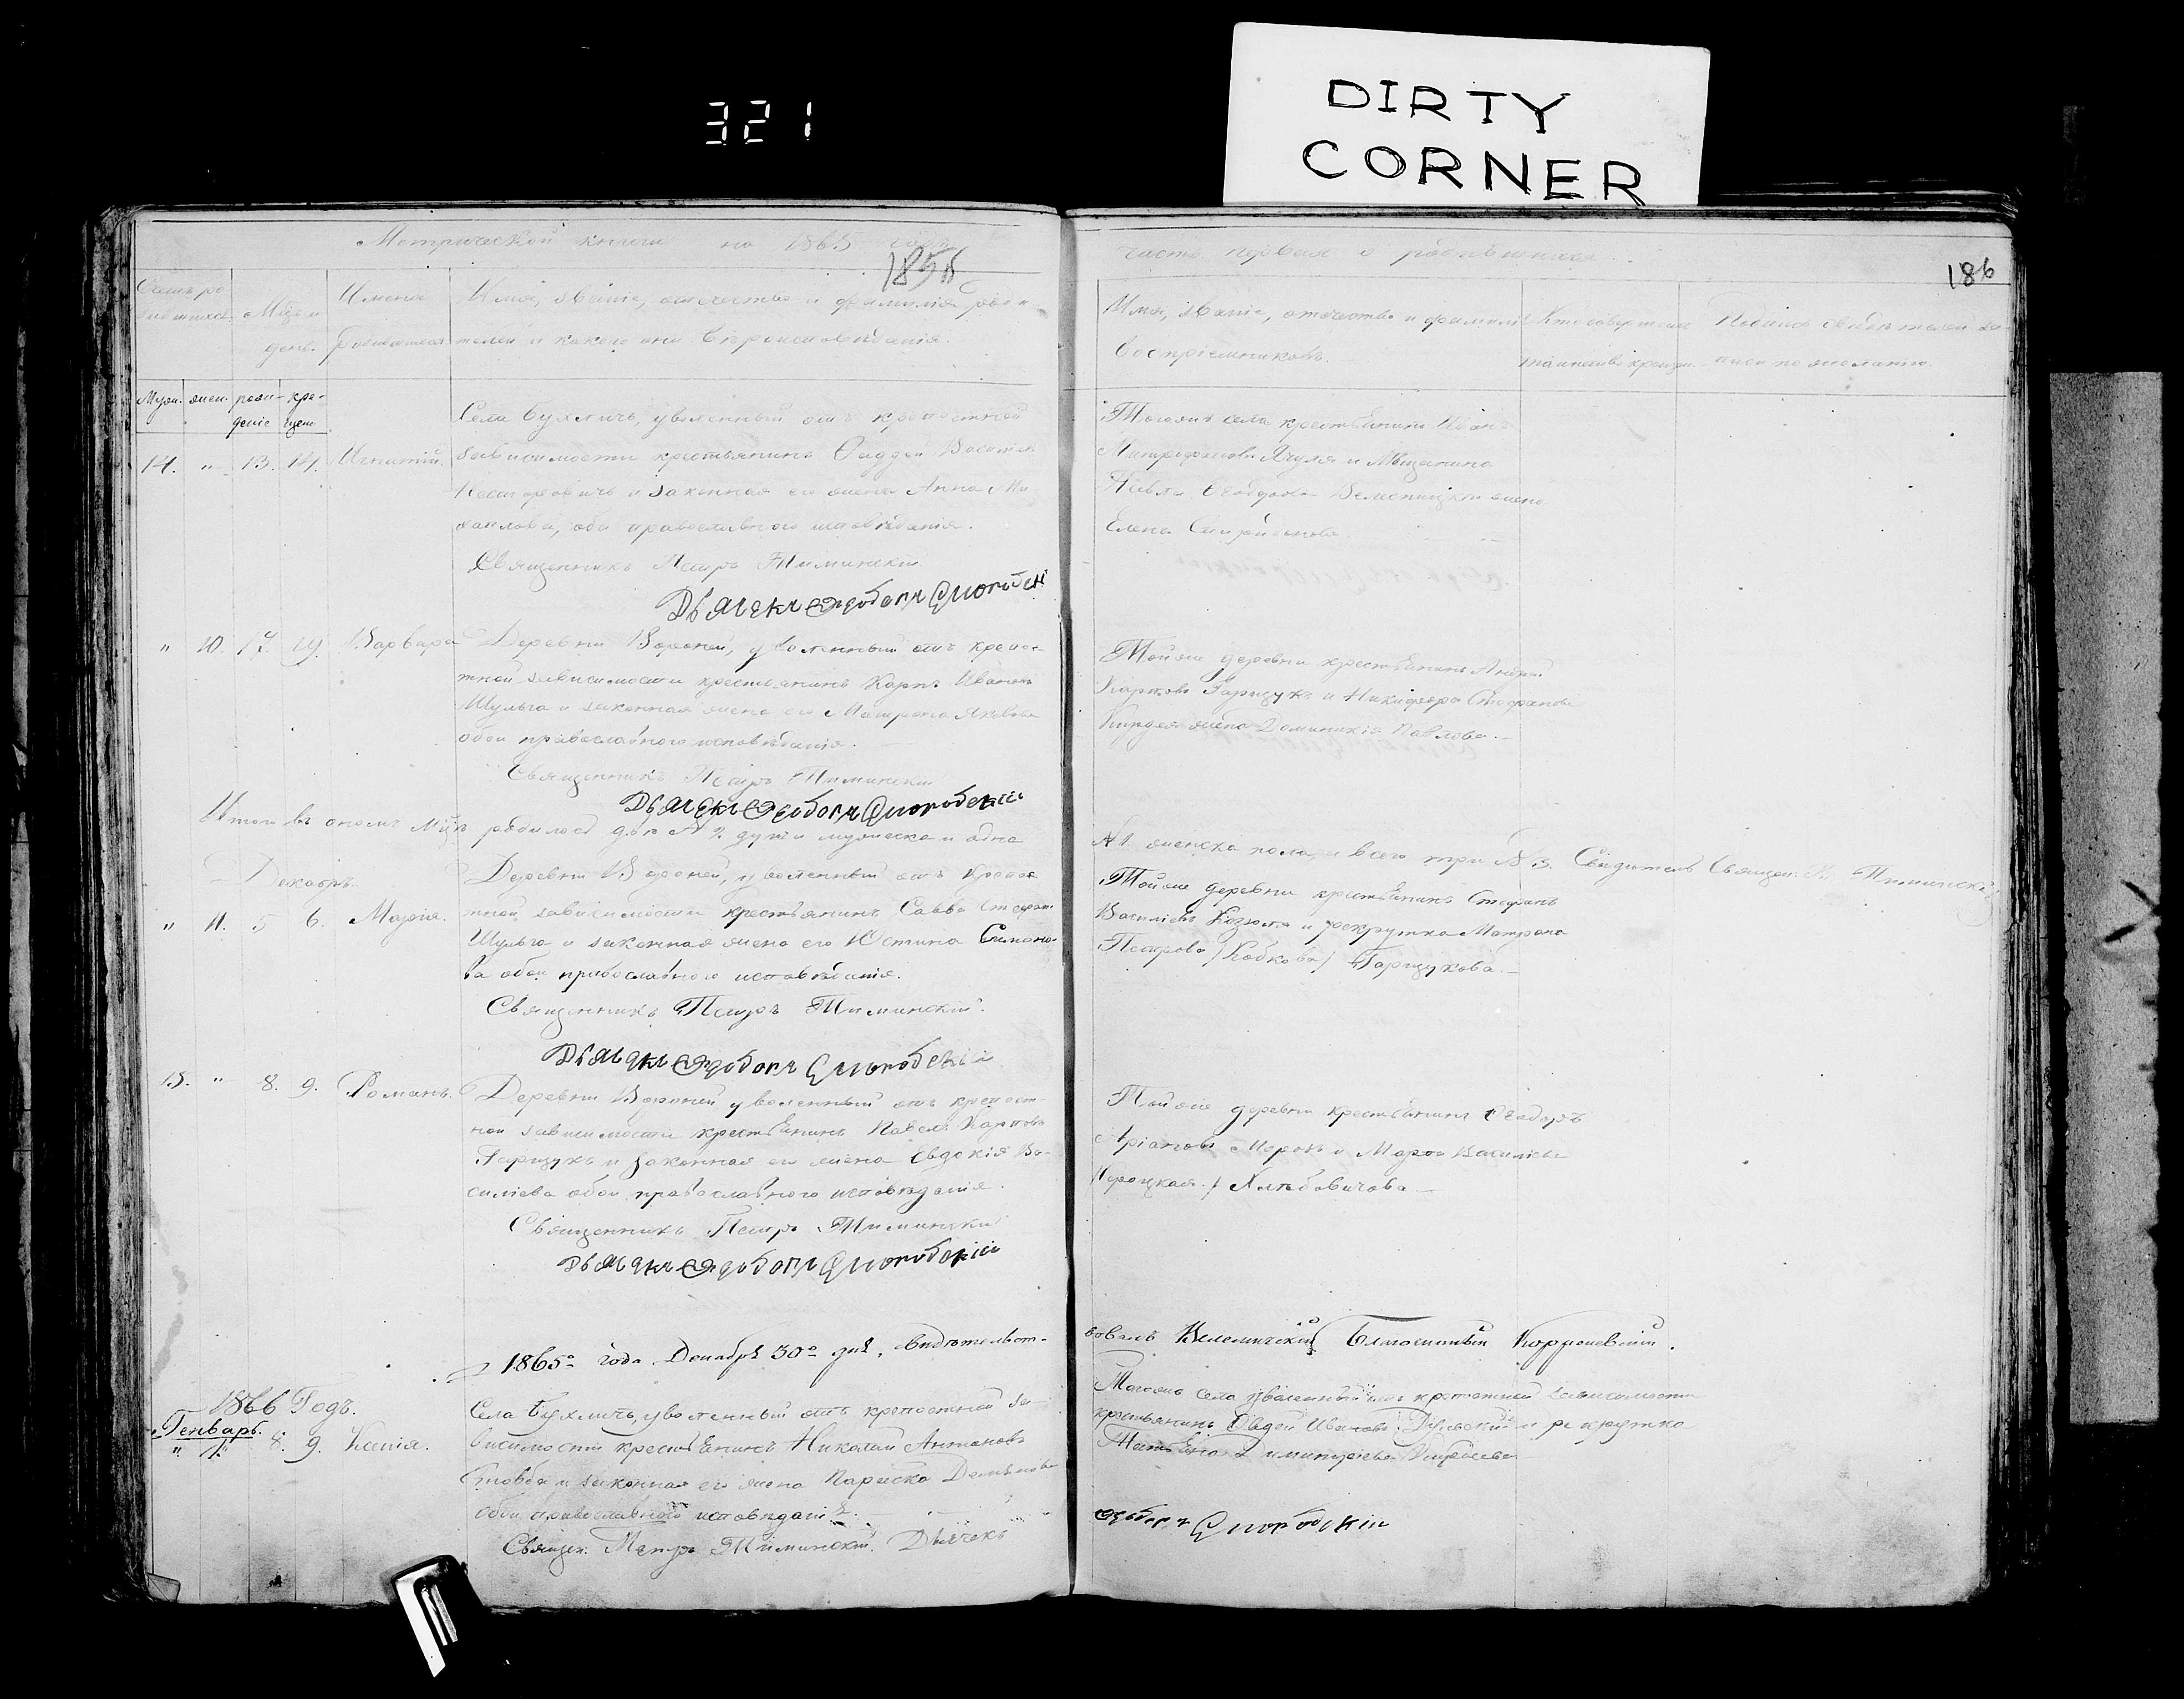 321
DIRTY
CORNER
Метрической книги на 1865 годъ
185
часть первая о родившихся.
186
Счетъ ро-
дившихся.
Мѣсяцъ и
день.
Имена
родившихся
Имя, званіе, отчество и фамилія роди-
телей и какого они вѣроисповѣданія.
Имя, званіе, отчество и фамилія
воспріемниковъ.
Кто совершалъ
таинство крещен.
Подпись свидѣтелей за-
писи по желанію.
Муж. жен. рож- кре-
деніе щен.
14. " 13. 14. Игнатій.
Села Бухличь, уволенный отъ крепостной
зависимости крестьянинъ Фаддей
и законная его жена Анна Ми-
хаилова, оба православнаго исповѣданія.
Священникъ Петръ Тиминскій
Дьячекъ Ѳеодоръ Смородскій
Тогожъ села крестьянинъ Иванъ
и Мѣщанина
жена
Елена
" 10. 17. 19. Варвара
Деревни Вороней, уволенный отъ крепос-
тной зависимости крестьянинъ Карпъ Ивановъ
Шульга и законная жена его Матрона Яковлева
обои православного исповѣданія.
Священникъ Петръ Тиминскій
Дьячекъ Ѳеодоръ Смородскій
Той же деревни крестьянинъ Андрей
Карповъ Гарщукъ и Никифора Стефанова
жена Доминикія Павлова.
Итого въ ономъ Мцѣ родилось два № 2. душы мужеска и одна
№ 1. женска пола, а всего три № 3. Свидѣтель Священ. П. Тиминскій
Декабрь.
" 11. 5 6. Марія.
Деревни Вороней, уволенный отъ крепос-
тной зависимости крестьянинъ Савва Стефан.
Шульга и законная жена его Юстина Симоно-
ва обои православного исповѣданія.
Священникъ Петръ Тиминскій.
Дьячекъ Ѳеодоръ Смородскій
Той же деревни крестьянинъ Стефанъ
Василіевъ Козюля и рекрутка Матрона
Петрова /Кобкова/ Гарщукова.
15. " 8. 9. Романъ.
Деревни Вороней уволенный отъ крепост-
ной зависимости крестьянинъ Павелъ Карповъ
Гарщукъ и законная его жена Евдокія Ва-
силіева обои православного исповѣданія.
Священникъ Петръ Тиминскій
Дьячекъ Ѳеодоръ Смородскій
Той же деревни крестьянинъ Ѳеодоръ
Морозъ и Марѳа Василіева
1865го года. Декабря 30го дня, свидѣтельст-
вовалъ Благочинный
1866 Годъ.
Генварь.
" 1. 8. 9. Ксенія.
Села Бухличь, уволенный отъ крепостной за-
висимости крестьянинъ Николай Антоновъ
и законная его жена Параска
обои православного исповеданія.
Священ. Петръ Тиминскій. Дьячекъ
Тогожъ села уволенный отъ крепостной зависимости
крестьянинъ Ивановъ и рекрутка
Ѳеодоръ Смородскій